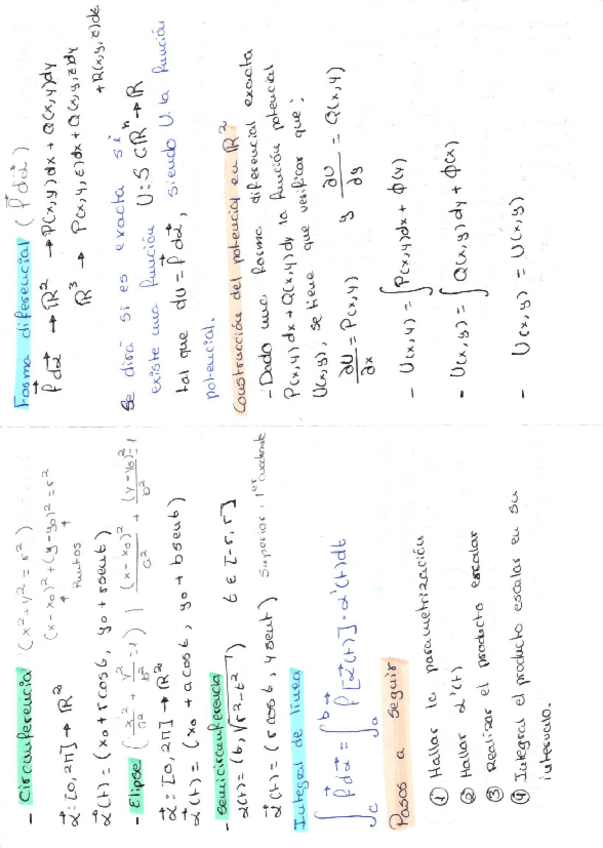 - Circunferencia (x² + y² = r²)
(x-x₀)² + (y-y₀)² = r²
Puntos
α⃗: [0, 2π] → ℝ²
α⃗(t) = (x₀ + rcost, y₀ + rsent)
- Elipse (x²/a² + y²/b² = 1) | (x-x₀)²/a² + (y-y₀)²/b² = 1
α⃗: [0, 2π] → ℝ²
α⃗(t) = (x₀ + acost, y₀ + bsent)
- Semicircunferencia
α(t) = (t, √r²-t²) t ∈ [-r, r]
α⃗(t) = (r cost, r sent) Superior, 1er cuadrante
Integral de línea
∫_C f⃗dα⃗ = ∫_a^b f⃗[α⃗(t)] · α⃗'(t)dt
Pasos a seguir
① Hallar la parametrización
② Hallar α'(t)
③ Realizar el producto escalar
④ Integral el producto escalar en su
intervalo.
Forma diferencial (f⃗dα⃗)
f⃗dα⃗ → ℝ² → P(x,y)dx + Q(x,y)dy
ℝ³ → P(x,y,z)dx + Q(x,y,z)dy
+ R(x,y,z)dz
Se dirá si es exacta si
existe una función U: S ⊂ ℝⁿ → ℝ
tal que dU = f⃗dα⃗, siendo U la función
potencial.
Construcción del potencial en ℝ²
- Dado una forma diferencial exacta
P(x,y)dx + Q(x,y)dy la función potencial
U(x,y), se tiene que verificar que:
∂U/∂x = P(x,y) y ∂U/∂y = Q(x,y)
- U(x,y) = ∫P(x,y)dx + φ(y)
- U(x,y) = ∫Q(x,y)dy + φ(x)
- U(x,y) = U(x,y)